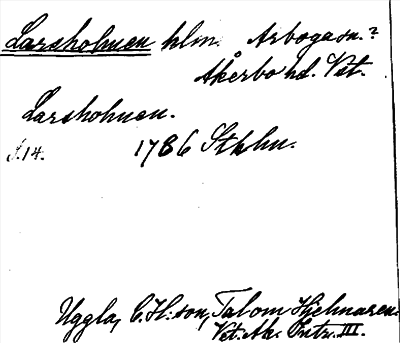 Larsholmen hlm. Arboga sn.?
Åkerbo hd. Vst.
Larsholmen.
S.14. 1786 Sthlm.
Uggla, C. H:son, Tal om Hjelmaren.
Vet. Ak. Intr. III.